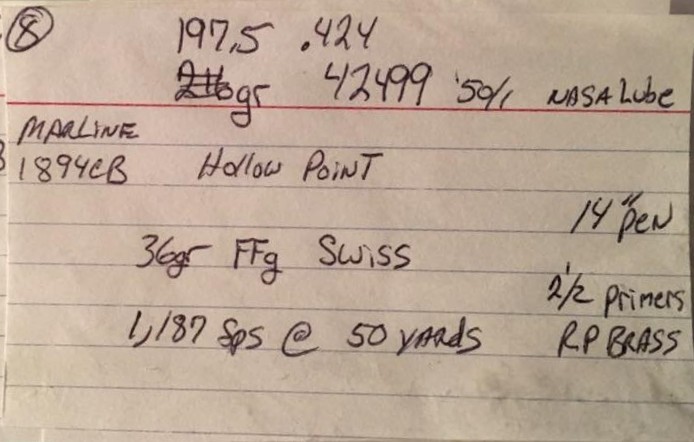 8
197.5 .424
gr 42499 50/1 NASA Lube
MARLINE
1894CB Hollow POINT
14" PEN
36gr FFg Swiss
2½ Primers
1,187 fps @ 50 YARDS R.P BRASS